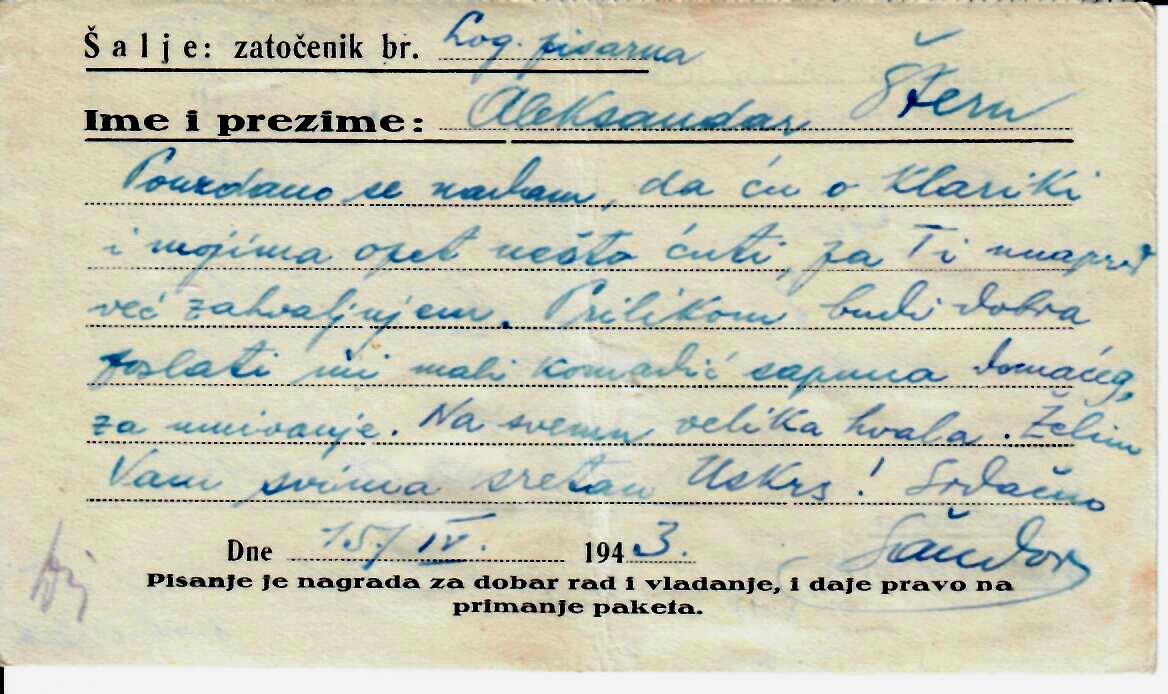 Šalje: zatočenik br. Log. pisarna
Ime i prezime: Aleksandar Štern
Pouzdano se nadam, da ću o Klariki
i mojima opet nešto ćuti, za Ti unapred
već zahvaljujem. Prilikom budi dobra
poslati mi mali komadić sapuna domaćeg,
za umivanje. Na svemu velika hvala. Želim
Vam svima sretan Uskrs! Srdačno
Dne 15/IV. 1943.
Šandor
Pisanje je nagrada za dobar rad i vladanje, i daje pravo na
primanje paketa.